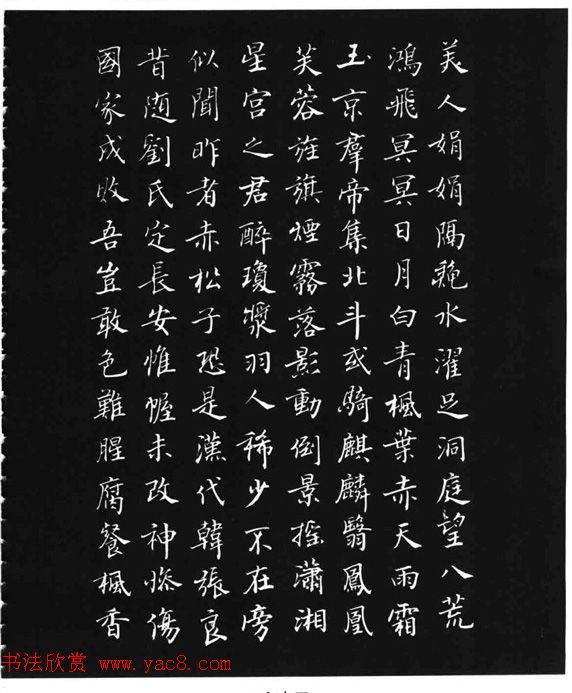 美人娟娟隔穐水濯足洞庭望八荒
鴻飛冥冥日月白青楓葉赤天雨霜
玉京羣帝集北斗或騎麒麟翳鳳凰
芙蓉旌旗煙霧落影動倒景摇瀟湘
星宮之君醉瓊漿羽人稀少不在旁
似聞昨者赤松子恐是漢代韓張良
昔随劉氏定長安帷幄未改神慘傷
國家成敗吾豈敢色難腥腐餐楓香
书法欣赏 www.yac8.com